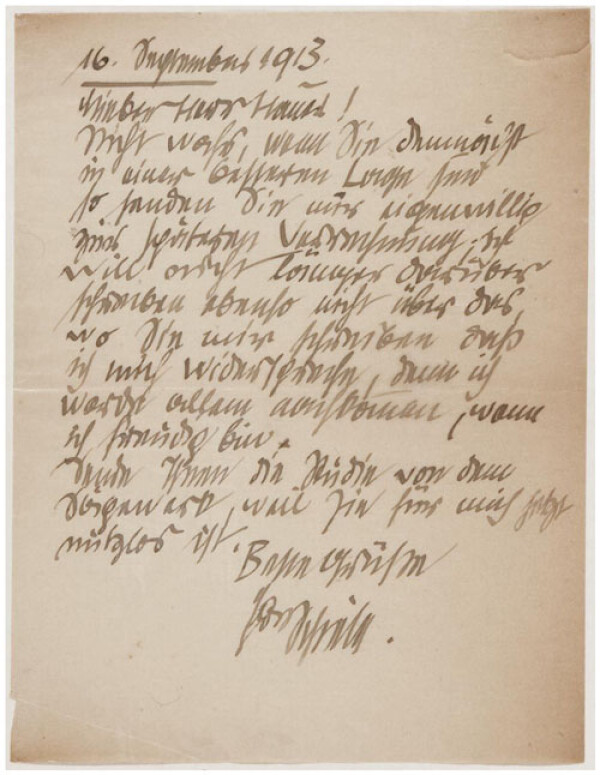 16. September 1913.
Lieber Herr Hauer!
Nicht wahr, wenn Sie demnächst
in einer besseren Lage sind
so senden Sie mir eigenwillig
zur späteren Verrechnung; ich
will nicht länger darüber
schreiben ebenso nicht über das,
wo Sie mir schreiben daß
ich mich widerspreche, denn ich
werde allem nachkommen, wenn
ich freudig bin.
Sende Ihnen die Studie von dem
Sägewerk, weil sie für mich jetzt
nutzlos ist.
Beste Grüße
Egon Schiele.